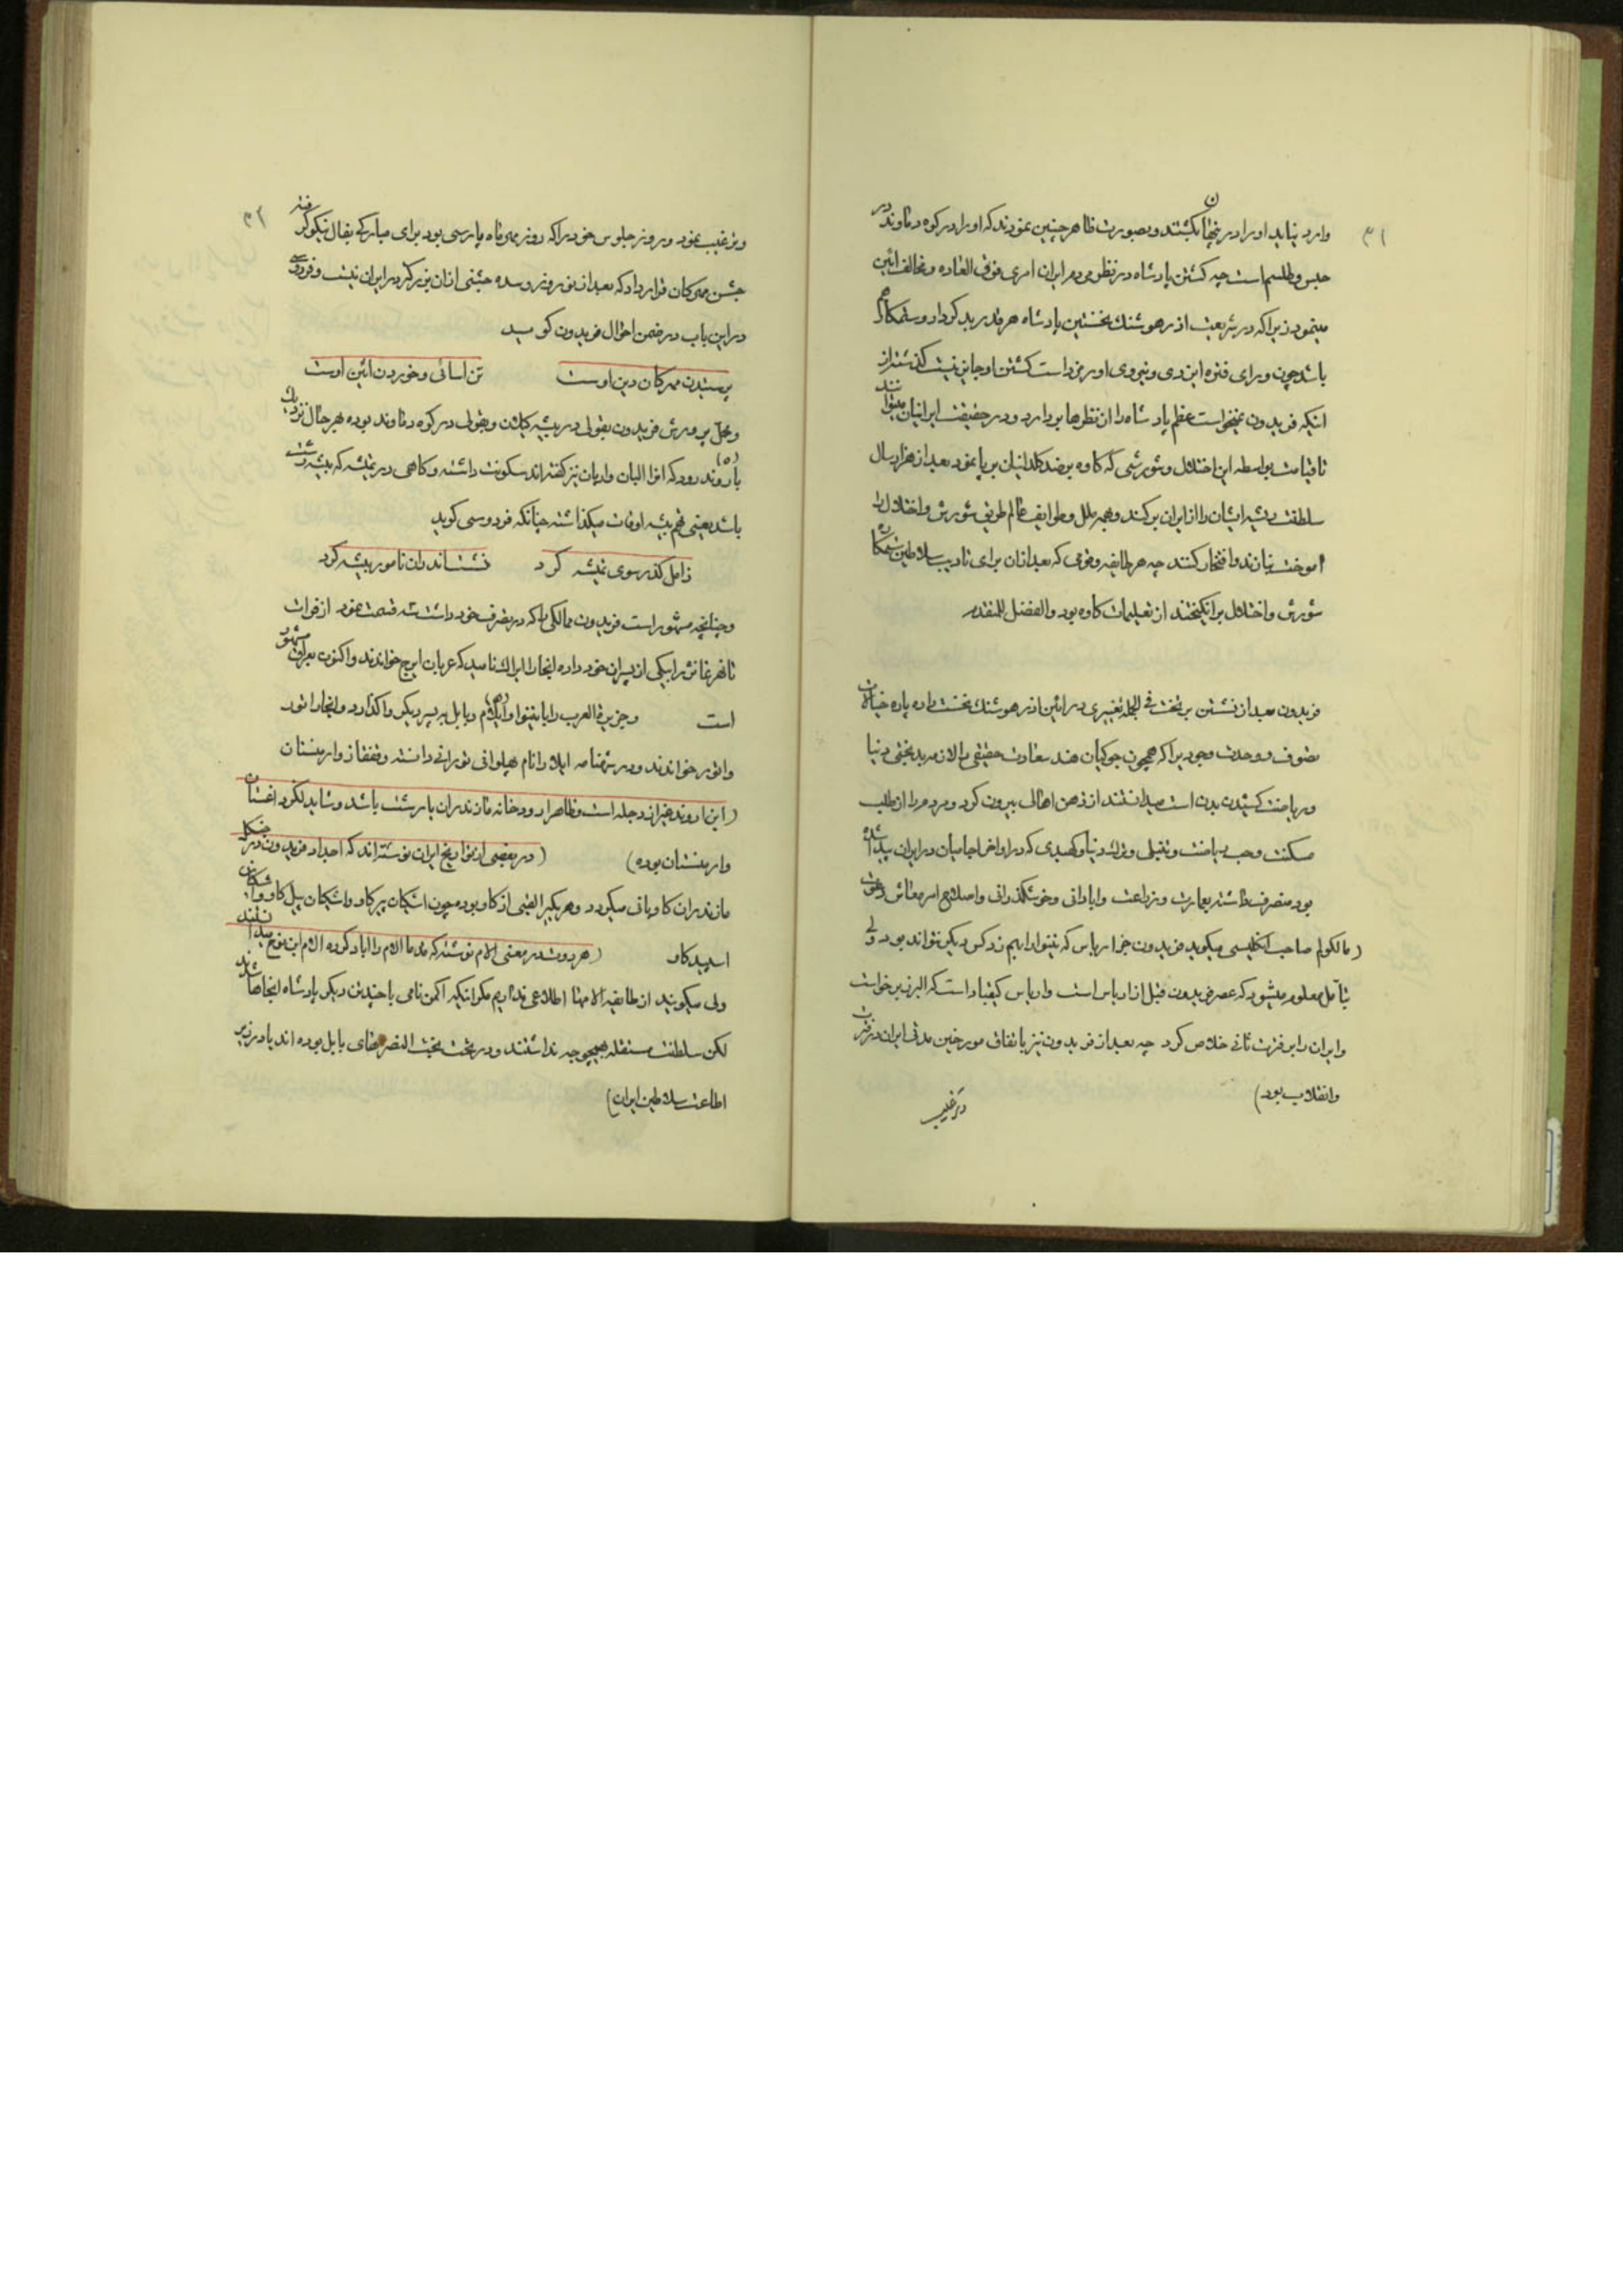 ۳۱
وارد نیاید او را در نهان بکشتند و بصورت ظاهر چنین نمودند که او را در کوه دماوند در
حبس و طلسم است چه کشتن پادشاه در نظر مردم ایران امری فوق العاده و مخالف آئین
مینمود زیرا که در شریعت آذرهوشنگ نخستین پادشاه هر قدر بد کردار و ستمکار هم
باشد چون ورای فتوه ایزدی و نیروی اورمزد است کشتن او جایز نیست گذشته از
اینکه فریدون نمیخواست عظم پادشاه را از نظرها بردارد و در حقیقت ایرانیان میتوانند
تا قیامت بواسطه این اختلال و شورشی که کاوه بر ضد کلدانیان برپا نمود بعد از هزار سال
سلطنت ریشه ایشان را از ایران برکند و همه ملل و طوایف عالم طریق شورش و اختلال را
آموخت بنازند و افتخار کنند چه هر طایفه و قومی که بعد از آن برای تادیب سلاطین ستمکار
شورش و اختلال برانگیختند از تعلیمات کاوه بود و الفضل للمتقدم
فریدون بعد از نشستن بر تخت فی الجمله تغییری در آئین آذرهوشنگ نخست داده پاره خیالات
تصوف و وحدت وجود را که همچون جوکیان هند سعادت حقیقی را لازمه بدبختی دنیا
و ریاضت کشیدن بدن است میدانستند از ذهن اهالی بیرون کرد و مردم را از طلب
مسکنت و حب ریاضت و تنبلی و ترک دنیا و کهبدی که در اواخر آجامیان در ایران پیدا شده
بود منصرف داشته بعمارت و زراعت و آبادانی و خوشگذرانی و اصلاح امر معاش دعوت
(مالکولم صاحب انگلیسی میگوید فریدون جز ارباس که نینوا را بهم زد کس دیگر نتواند بود ولی
بتامل معلوم میشود که عصر فریدون قبل از ارباس است و ارباس کیقباد است که از البرز برخاست
و ایران را بر فترت ثانی خلاص کرد چه بعد از فریدون نیز باتفاق مورخین مدتی ایران در فترت
و انقلاب بود)
و ترغیب
۳۲
و ترغیب نمود و روز جلوس خود را که روز مهر ماه پارسی بود برای مبارکی بفال نیکو گرفته
جشن مهرگان قرار داد که بعد از نوروز و سده جشنی از آن بزرگتر در ایران نیست و فردوسی
در این باب در ضمن احوال فریدون گوید
پرستیدن مهرگان دین اوست تن آسائی و خوردن آئین اوست
و محل پرورش فریدون بقولی در بیشه گیلان و بقولی در کوه دماوند بوده بهر حال نزدیک
باروند رود (۵) که آنرا البان و اریان نیز گفته اند سکونت داشته و گاهی در تمیشه که بیشه رشت
باشد یعنی تهم بیشه اوقات میگذاشته چنانکه فردوسی گوید
ز آمل گذر سوی تمیشه کرد نشست اندر آن نامور بیشه کرد
و چنانچه مشهور است فریدون ممالکی را که در تصرف خود داشت سه قسمت نمود از فرات
تا فرغانه را بیکی از پسران خود داده آنجا را ایراک نامید که عربان ایرج خواندند و اکنون بعراق مشهور
است و جزیرة العرب را با نینوا و ایلام و بابل به پسر دیگر واگذارد و آنجا را اثور
و اتور خواندند و در شهنامه ایلا را نام پهلوانی تورانی دانسته و قفقاز و ارمنستان
(این اروند غیر از دجله است و ظاهرا رودخانه مازندران یا رشت باشد و شاید لکرد اغستان
و ارمنستان بوده) (در بعضی از تواریخ ایران نوشته اند که اجداد فریدون در جنگل
مازندران گاوبانی میکردند و هر یکی را لقبی از گاو بود چون اشکان پر گاو و اشکان پیل گاو و اشکان
اسپید گاو (هردوت در معنی الام نوشته که مدها الام را آباد کرده الام ابن نوح میدانند
ولی میگویند از طایفه الامها اطلاعی نداریم مگر اینکه اکمن نامی با چندین دیگر پادشاه آنجا شدند
لکن سلطنت مستقله بهیچوجه نداشتند و در تحت بخت النصر های بابل بوده اند یا در زیر
اطاعت سلاطین ایران)